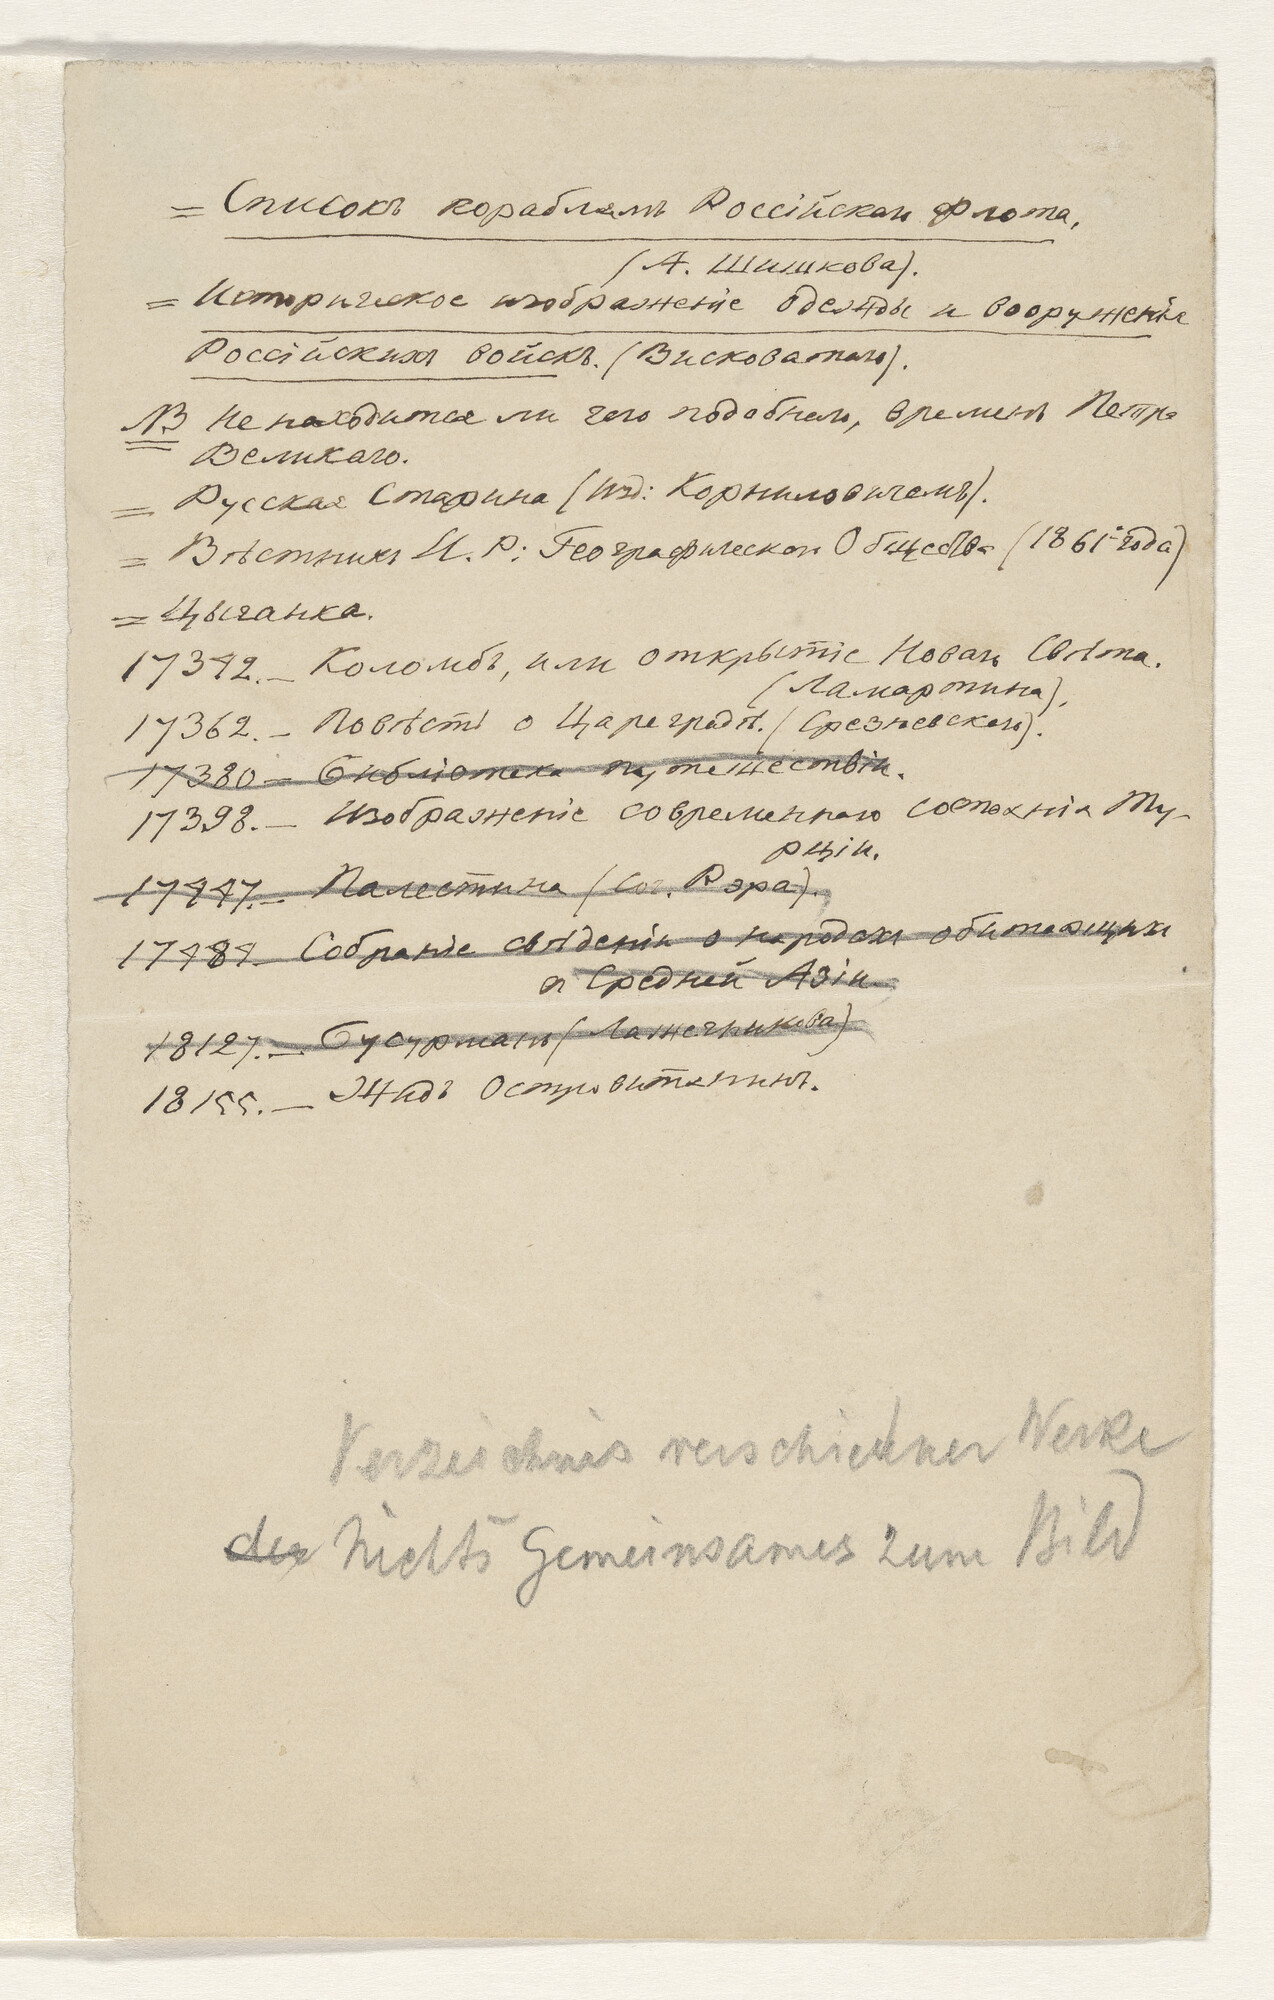 = Списокъ кораблямъ Россійскаго флота,
(А. Шишкова).
= Историческое изображеніе одежды и вооруженія
Россійскихъ войскъ. (Висковатаго).
NB Не находится ли чего подобнаго, временъ Петра
Великаго.
= Русская Старина (изд: Корниловичемъ).
= Вѣстникъ И. Р: Географическаго Общества (1861 года)
= Цыганка.
17342. – Коломбъ, или открытіе Новаго Свѣта.
(Ламартина).
17362. – Повѣсть о Цареградѣ. (Срезневскаго).
17380 – Библіотека путешествій.
17398. – Изображеніе современнаго состоянія Ту-
рціи.
17447. – Палестина (соч. Рэра).
17484. Собраніе свѣденій о народахъ обитавшихъ
въ Средней Азіи.
18127. – Бусурманъ (Лажечникова)
18155. – Жидъ Островитянинъ.
Verzeichnis verschiedner Werke
der Nichts Gemeinsames zum Bild